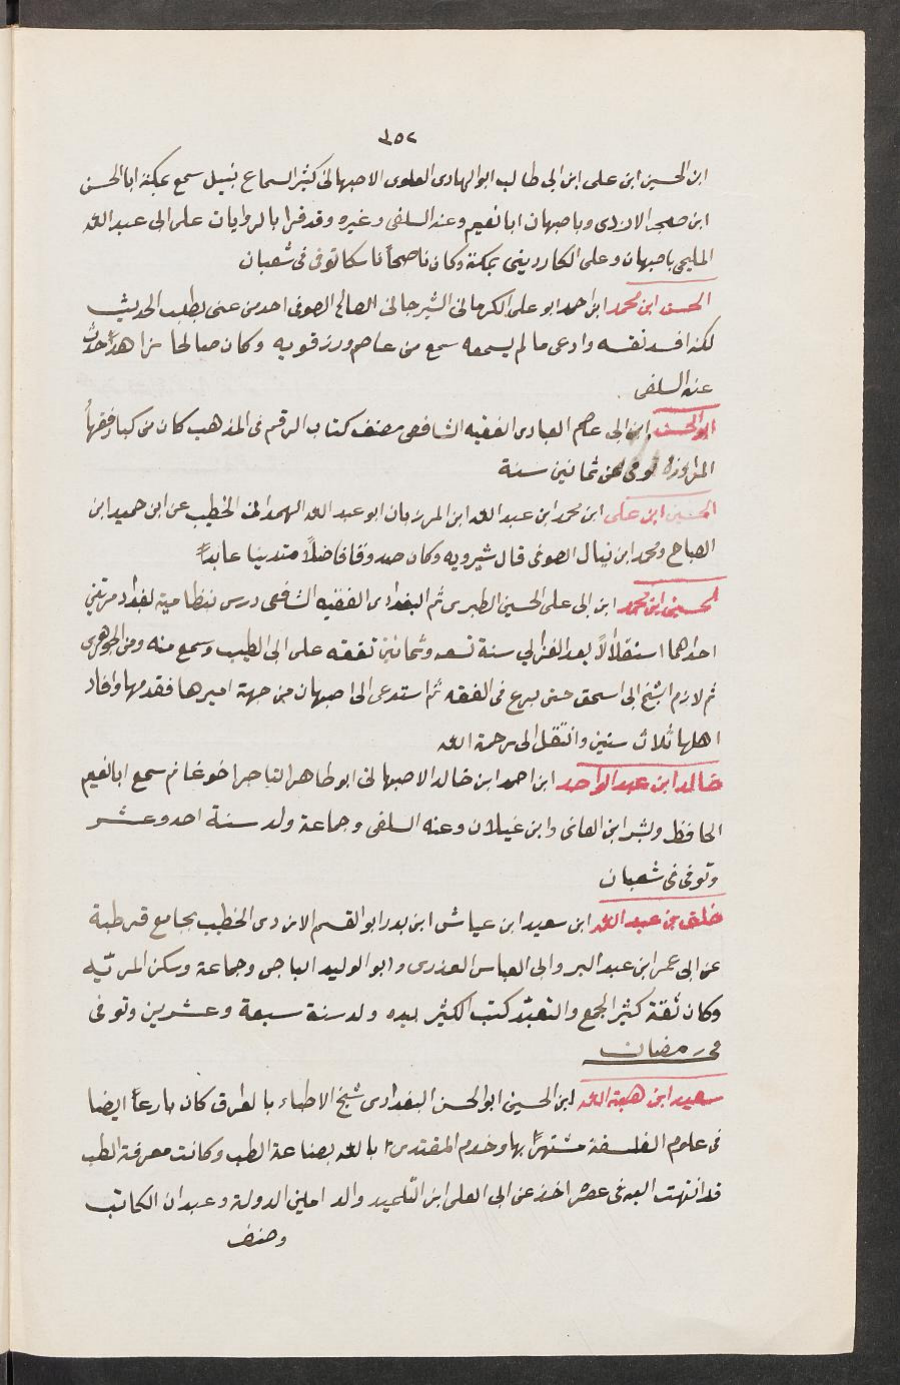 ٦٥٢
ابن الحسين ابن على ابن ابى طالب ابو الهادى العلوى الاصبهانى كثير السماع نبيل سمع بمكة ابا الحسن
ابن صخر الازدى وباصبهان ابا نعيم وعنه السلفى وغيره وقد قرا بالروايات على ابى عبد الله
المليحى باصبهان وعلى الكاردينى بمكة وكان ناصحاً ناسكا توفى فى شعبان
الحسن ابن محمد ابن احمد ابو على الكرمانى الشيرجانى الصالح الصوفى احد من عنى بطلب الحديث
لكنه افسد نفسه وادعى ما لم يسمعه سمع من عاصم ورزقويه وكان صالحا زاهداً حدث
عنه السلفى
ابو الحسن ابن ابى عاصم العبادى الفقيه الشافعى مصنف كتاب الرقم فى المذهب كان من كبار فقهاً
المراوزة توفى عن ثمانين سنة
الحسين ابن على ابن محمد ابن عبد الله ابن المرزبان ابو عبد الله الهمدانى الخطيب عن ابن حميد ابن
الصباح ومحمد ابن ينال الصوفى قال شيرويه وكان صدوقا فاضلاً متدينا عابداً
الحسين ابن محمد ابن ابى على الحسين الطبرى ثم البغدادى الفقيه الشافعى درس بنظامية بغداد مرتين
احداهما استقلالاً بعد الغزالي سنة تسعه وثمانين تفقه على ابى الطيب وسمع منه ومن الجوهرى
ثم لازم الشيخ ابى اسحق حتى برع فى الفقه ثم استدعى الى اصبهان من جهة اميرها فقدمها وافاد
اهلها ثلاث سنين وانتقل الى رحمة الله
خالد ابن عبد الواحد ابن احمد ابن خالد الاصبهانى ابو طاهر التاجر اخو غانم سمع ابا نعيم
الحافظ وبشر ابن الفانى وابن غيلان وعنه السلفى وجماعة ولد سنة احد وعشر
وتوفى فى شعبان
خلف بن عبد الله ابن سعيد ابن عياش ابن بدر ابو القسم الازدى الخطيب بجامع قرطبة
عن ابى عمر ابن عبد البر وابى العباس العذرى وابو الوليد الباجى وجماعة وسكن المريه
وكان ثقة كثير الجمع والتعبد كتب الكثير بيده ولد سنة سبعة وعشرين وتوفى
فى رمضان
سعيد ابن هبة الله ابن الحسين ابو الحسن البغدادى شيخ الاطباء بالعراق كان بارعاً ايضا
فى علوم الفلسفة مشتهراً بها وخدم المقتدى بالله بصناعة الطب وكانت معرفة الطب
قد انتهت اليه فى عصره اخذ عن ابى العلى ابن التلميذ والد امين الدولة وعبدان الكاتب
وصنف